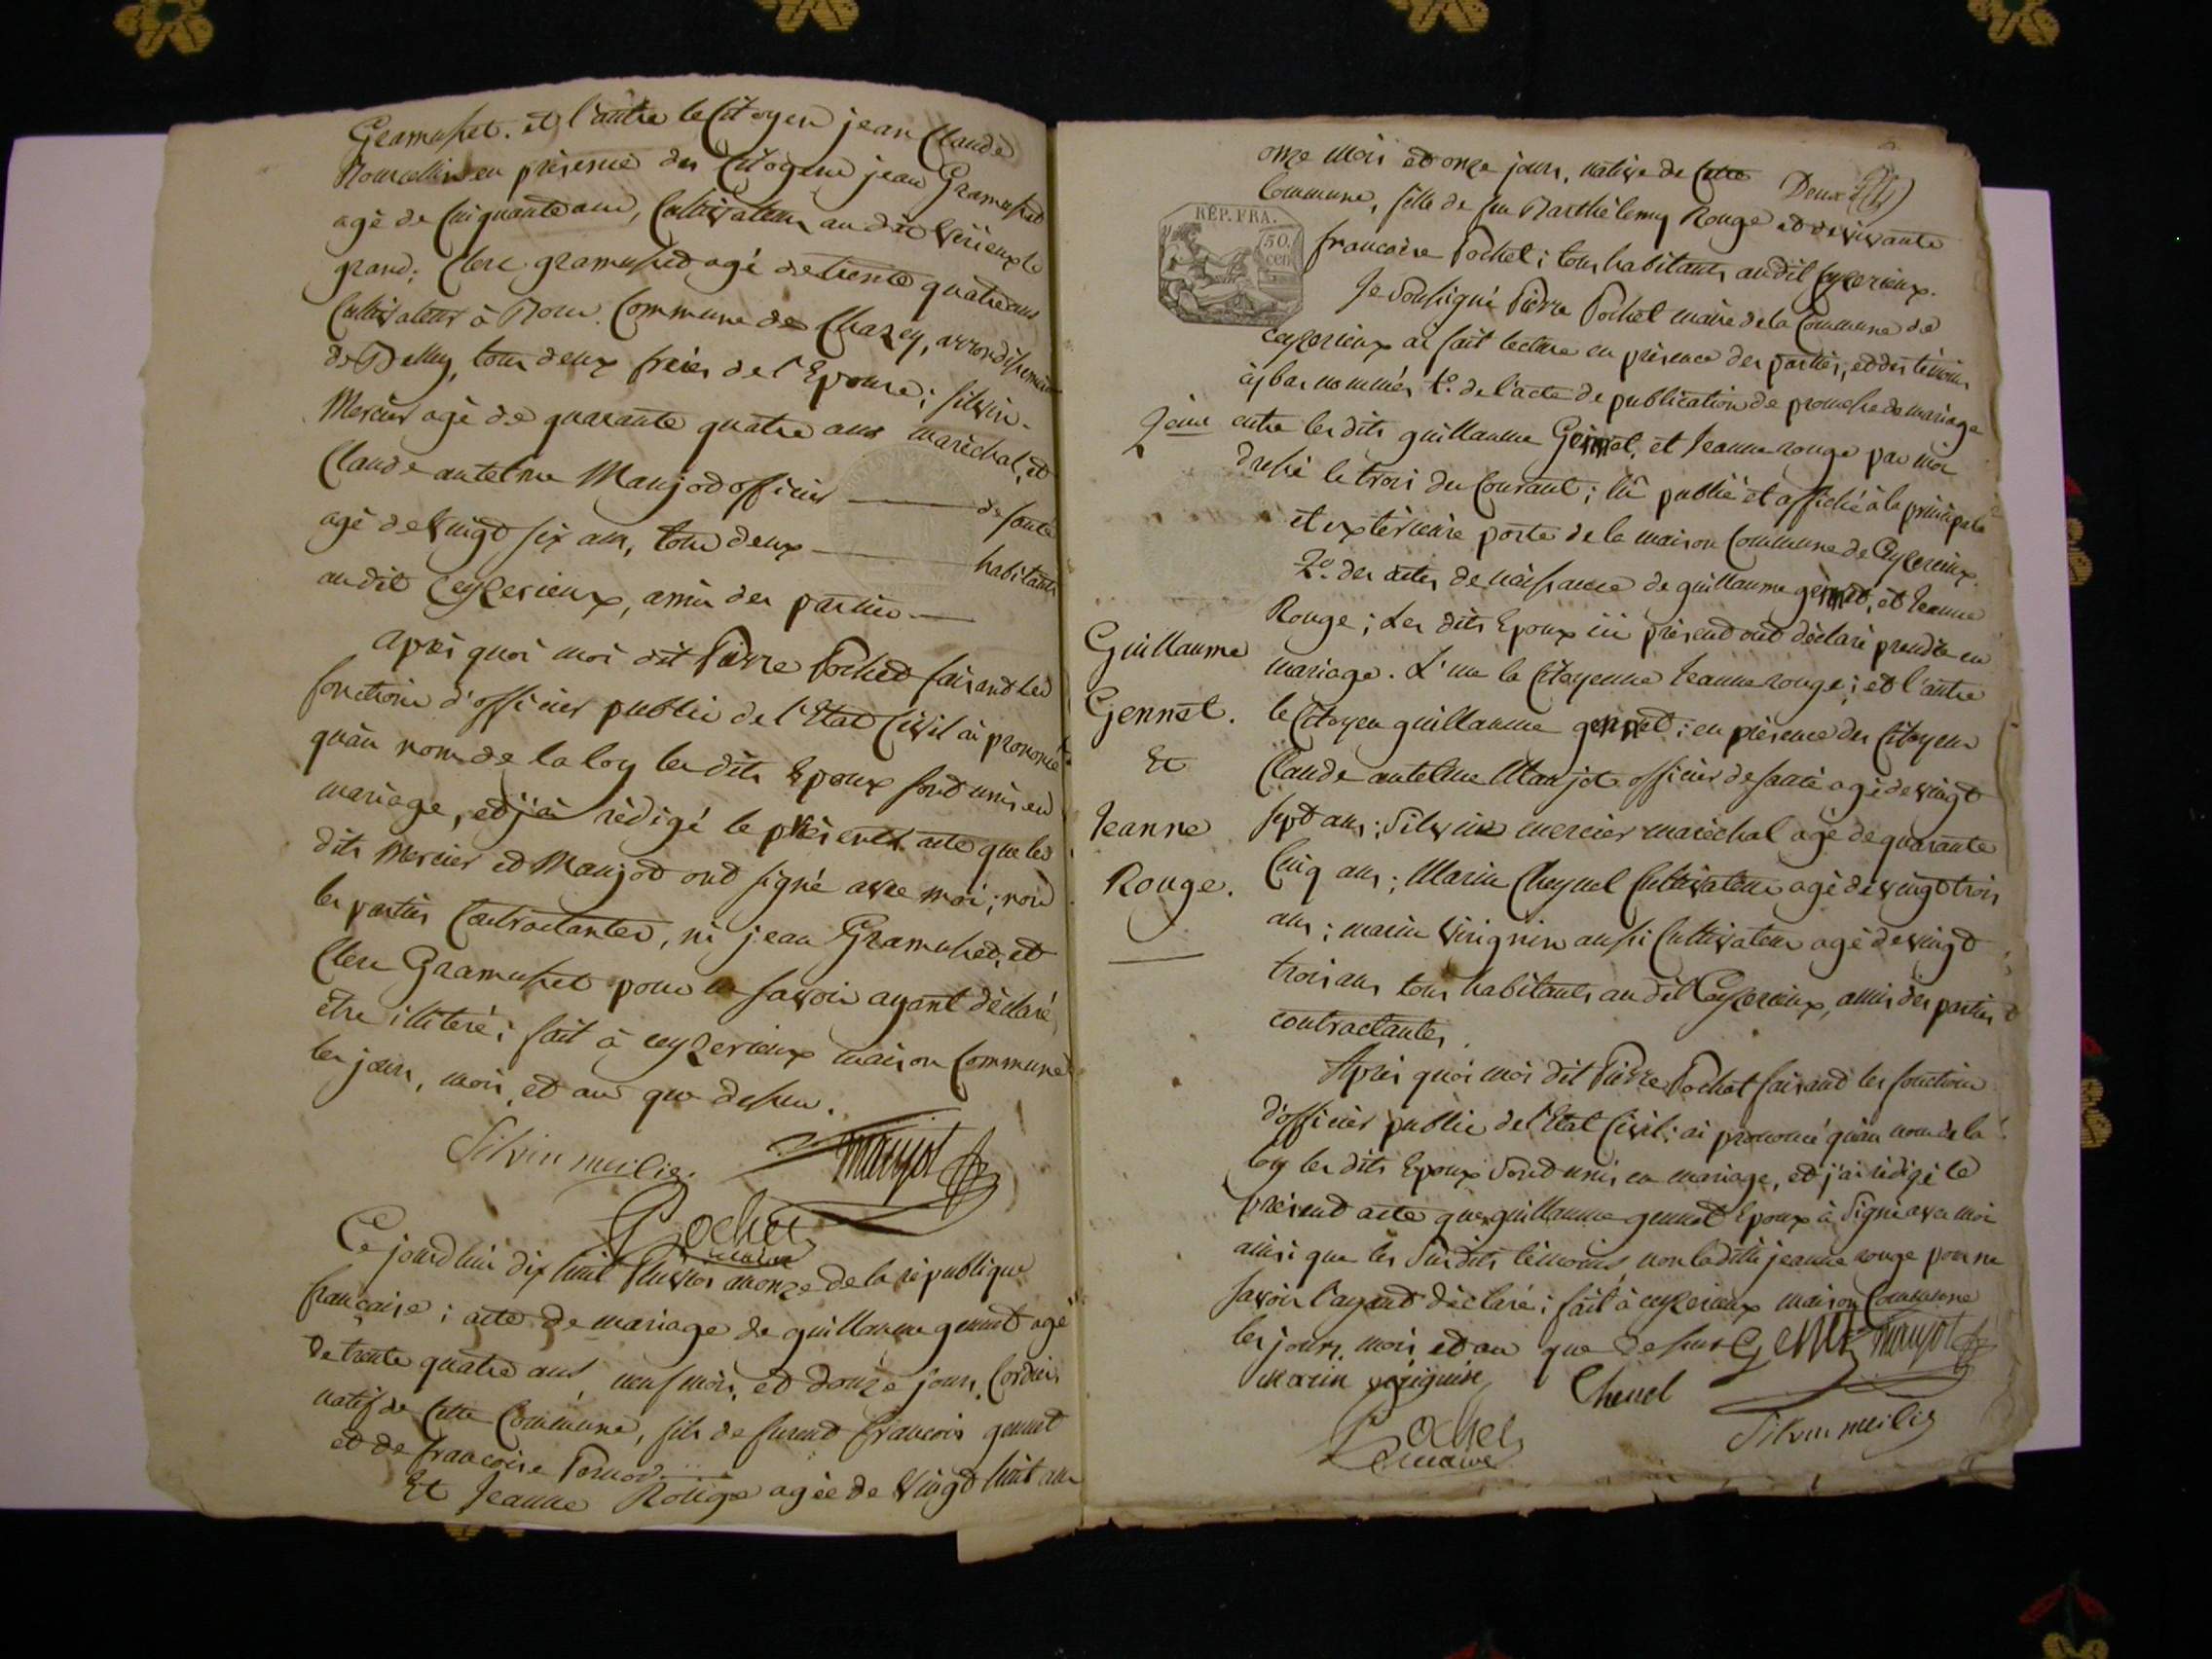 Gramusset. et l'autre le Citoyen jean Claude
en présence des Citoyens jean Gramusset
agé de Cinquante ans, Cultivateur au dit Virieux le
grand; Clerc gramusset agé de trente quatre ans
Cultivateur à Rour. Commune de Chazey, arrondissement
de Belley, tous deux freres de l'Epouse; Silvin
Mercier agé de quarante quatre ans maréchal, et
Claude antelme Maujod officier — de santé
agé de vingt six ans, tous deux — habitants
au dit Ceyzerieux, amis des parties —
après quoi moi dit Pierre Pochet faisant les
fonctions d'officier public de l'Etat Civil ai prononcé
qu'au nom de la loy les dits Epoux sont unis en
mariage, et j'ai rédigé le présent acte que les
dits Mercier et Maujod ont signé avec moi; non
les parties Contractantes, ni jean Gramusset, et
Clerc Gramusset pour le savoir ayant déclaré
être illiteré; fait à ceyzerieux maison Commune
les jours, mois, et an que dessus.
Silvin meilier maujot
Pochet
maire
Ce jourd'hui dix huit Pluviôs an onze de la république
française; acte de mariage de guillaume gennet agé
de trente quatre ans neuf mois, et douze jours, Cordier
natif de Cette Commune, fils de furent francois gennet
et de francoise
Et Jeanne Rouge agée de Vingt huit ans
onze mois et onze jours, native de Cette
Deux
Commune, fille de feu Barthélemy Rouge et de vivante
REP. FRA.
50.
cen.
francoise Pochet; tous habitants au dit Ceyzerieux.
Je Soussigné Pierre Pochet maire de la Commune de
Ceyzerieux ai fait lecture en présence des parties, et des témoins
cy bas nommés 1.º de l'acte de publication de promesse de mariage
2eme
entre les dits guillaume Gennet, et Jeanne rouge par moi
dressé le trois du Courant; lû publié et affiché à la principale
et extérieure porte de la maison Commune de Ceyzerieux.
2.º des actes de naissance de guillaume gennet, et Jeanne
Rouge; Les dits Epoux ici présent ont déclaré prendre en
Guillaume
mariage. L'un la Citoyenne Jeanne rouge; et l'autre
Gennet.
le Citoyen guillaume gennet; en présence des Citoyens
Et
Claude antelme Maujot officier de santé agé de vingt
Jeanne
sept ans; Silvin mercier maréchal agé de quarante
Rouge.
Cinq ans; Marin Cheynel Cultivateur agé de vingt trois
ans; marin Virignin aussi Cultivateur agé de vingt
trois ans tous habitants au dit Ceyzerieux, amis des parties
contractantes.
Après quoi moi dit Pierre Pochet faisant les fonctions
d'officier public de l'Etat Civil; ai prononcé qu'au nom de la
loy les dits Epoux sont unis en mariage, et j'ai rédigé le
présent acte que guillaume gennet Epoux a signé avec moi
ainsi que les susdits témoins non la ditte jeanne rouge pour ne
savoir l'ayant déclaré; fait à ceyzerieux maison Commune
les jours, mois et an que dessus Gennet maujot
marin virignin Chenel
Pochet Silvin meilier
maire